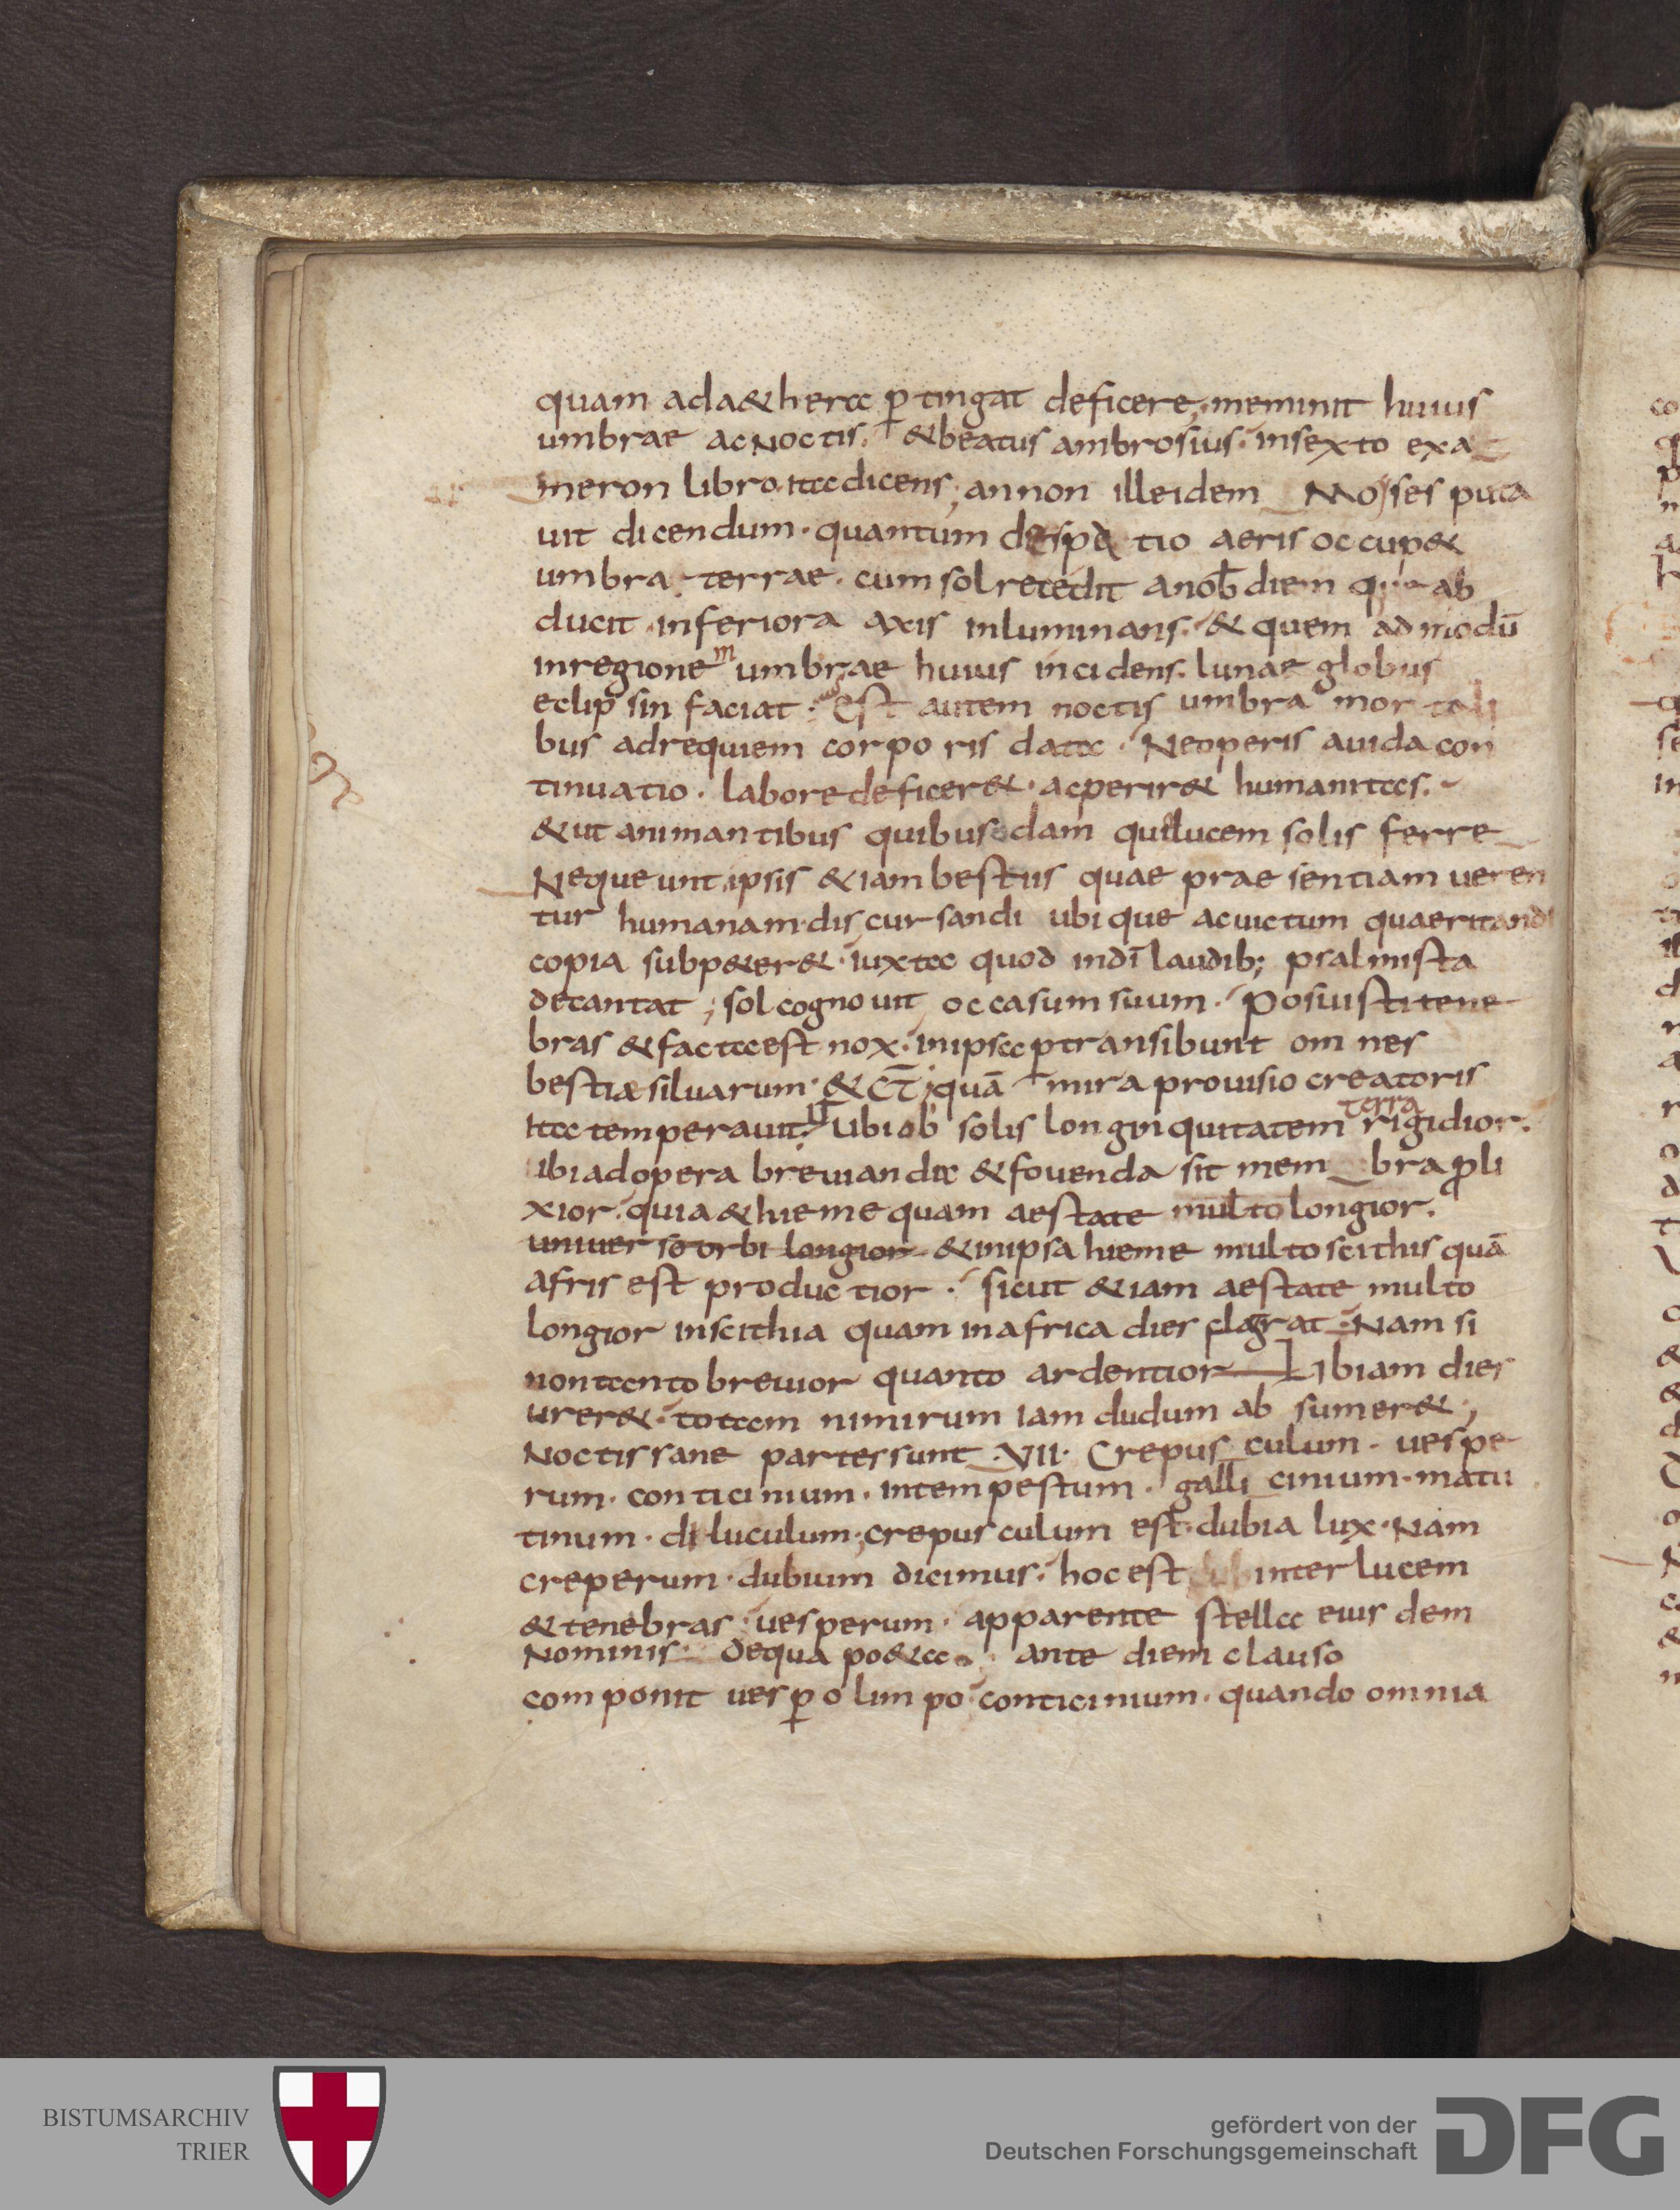 quam ad aethera ꝑtingat deficere, meminit huius
umbrae ac noctis. & beatus ambrosius. in sexto exa
meron libro ita dicens; an non ille idem Moyses puta
uit dicendum. quantum de spatio aeris occup&
umbra terrae. cum sol recedit a nob̄ diemque ab
ducit inferiora axis inluminans. & quem admodū
in regioneᵐ umbrae huius incidens. lunae globus
eclipsin faciat. est autem noctis umbra mortali
bus ad requiem corporis data. Ne operis auida con
tinuatio. labore deficer&. ac perir& humanitas.
& ut animantibus quibusdam qui lucem solis ferre
Nequeunt. ipsis &iam bestiis quae praesentiam ueren
tur humanam. discursandi ubique ac uictum quaeritandi
copia subp&er&. iuxta quod in dī laudib; psalmista
decantat; sol cognouit occasum suum. Posuisti tene
bras & facta est nox. in ipsa ꝑtransibunt omnes
bestiae siluarum. & c̄t; quā mira prouisio creatoris
ita temperauit. ut ubi ob solis longinquitatem terra rigidior.
ibi ad opera breuianda & fouenda sit membra ꝓli
xior. quia & hieme quam aestate multo longior.
uniuerso orbi longior & in ipsa hieme multo scithis quā
afris est productior. sicut &iam aestate multo
longior in scithia quam in africa dies flagrat. Nam si
non tanto breuior quanto ardentior Libiam dies
urer&. totam nimirum iam dudum absumer&;
Noctis sane partes sunt .VII. Crepusculum. uespe
rum. conticinium. intempestum. gallicinium. matu
tinum. diluculum; crepusculum est. dubia lux. Nam
creperum. dubium dicimus. hoc est inter lucem
& tenebras. uesperum. apparente stella eius dem
Nominis. de qua po&a. ante diem clauso
componit uesꝑ olimpo. conticinium. quando omnia
BISTUMSARCHIV
TRIER
gefördert von der
Deutschen Forschungsgemeinschaft
DFG